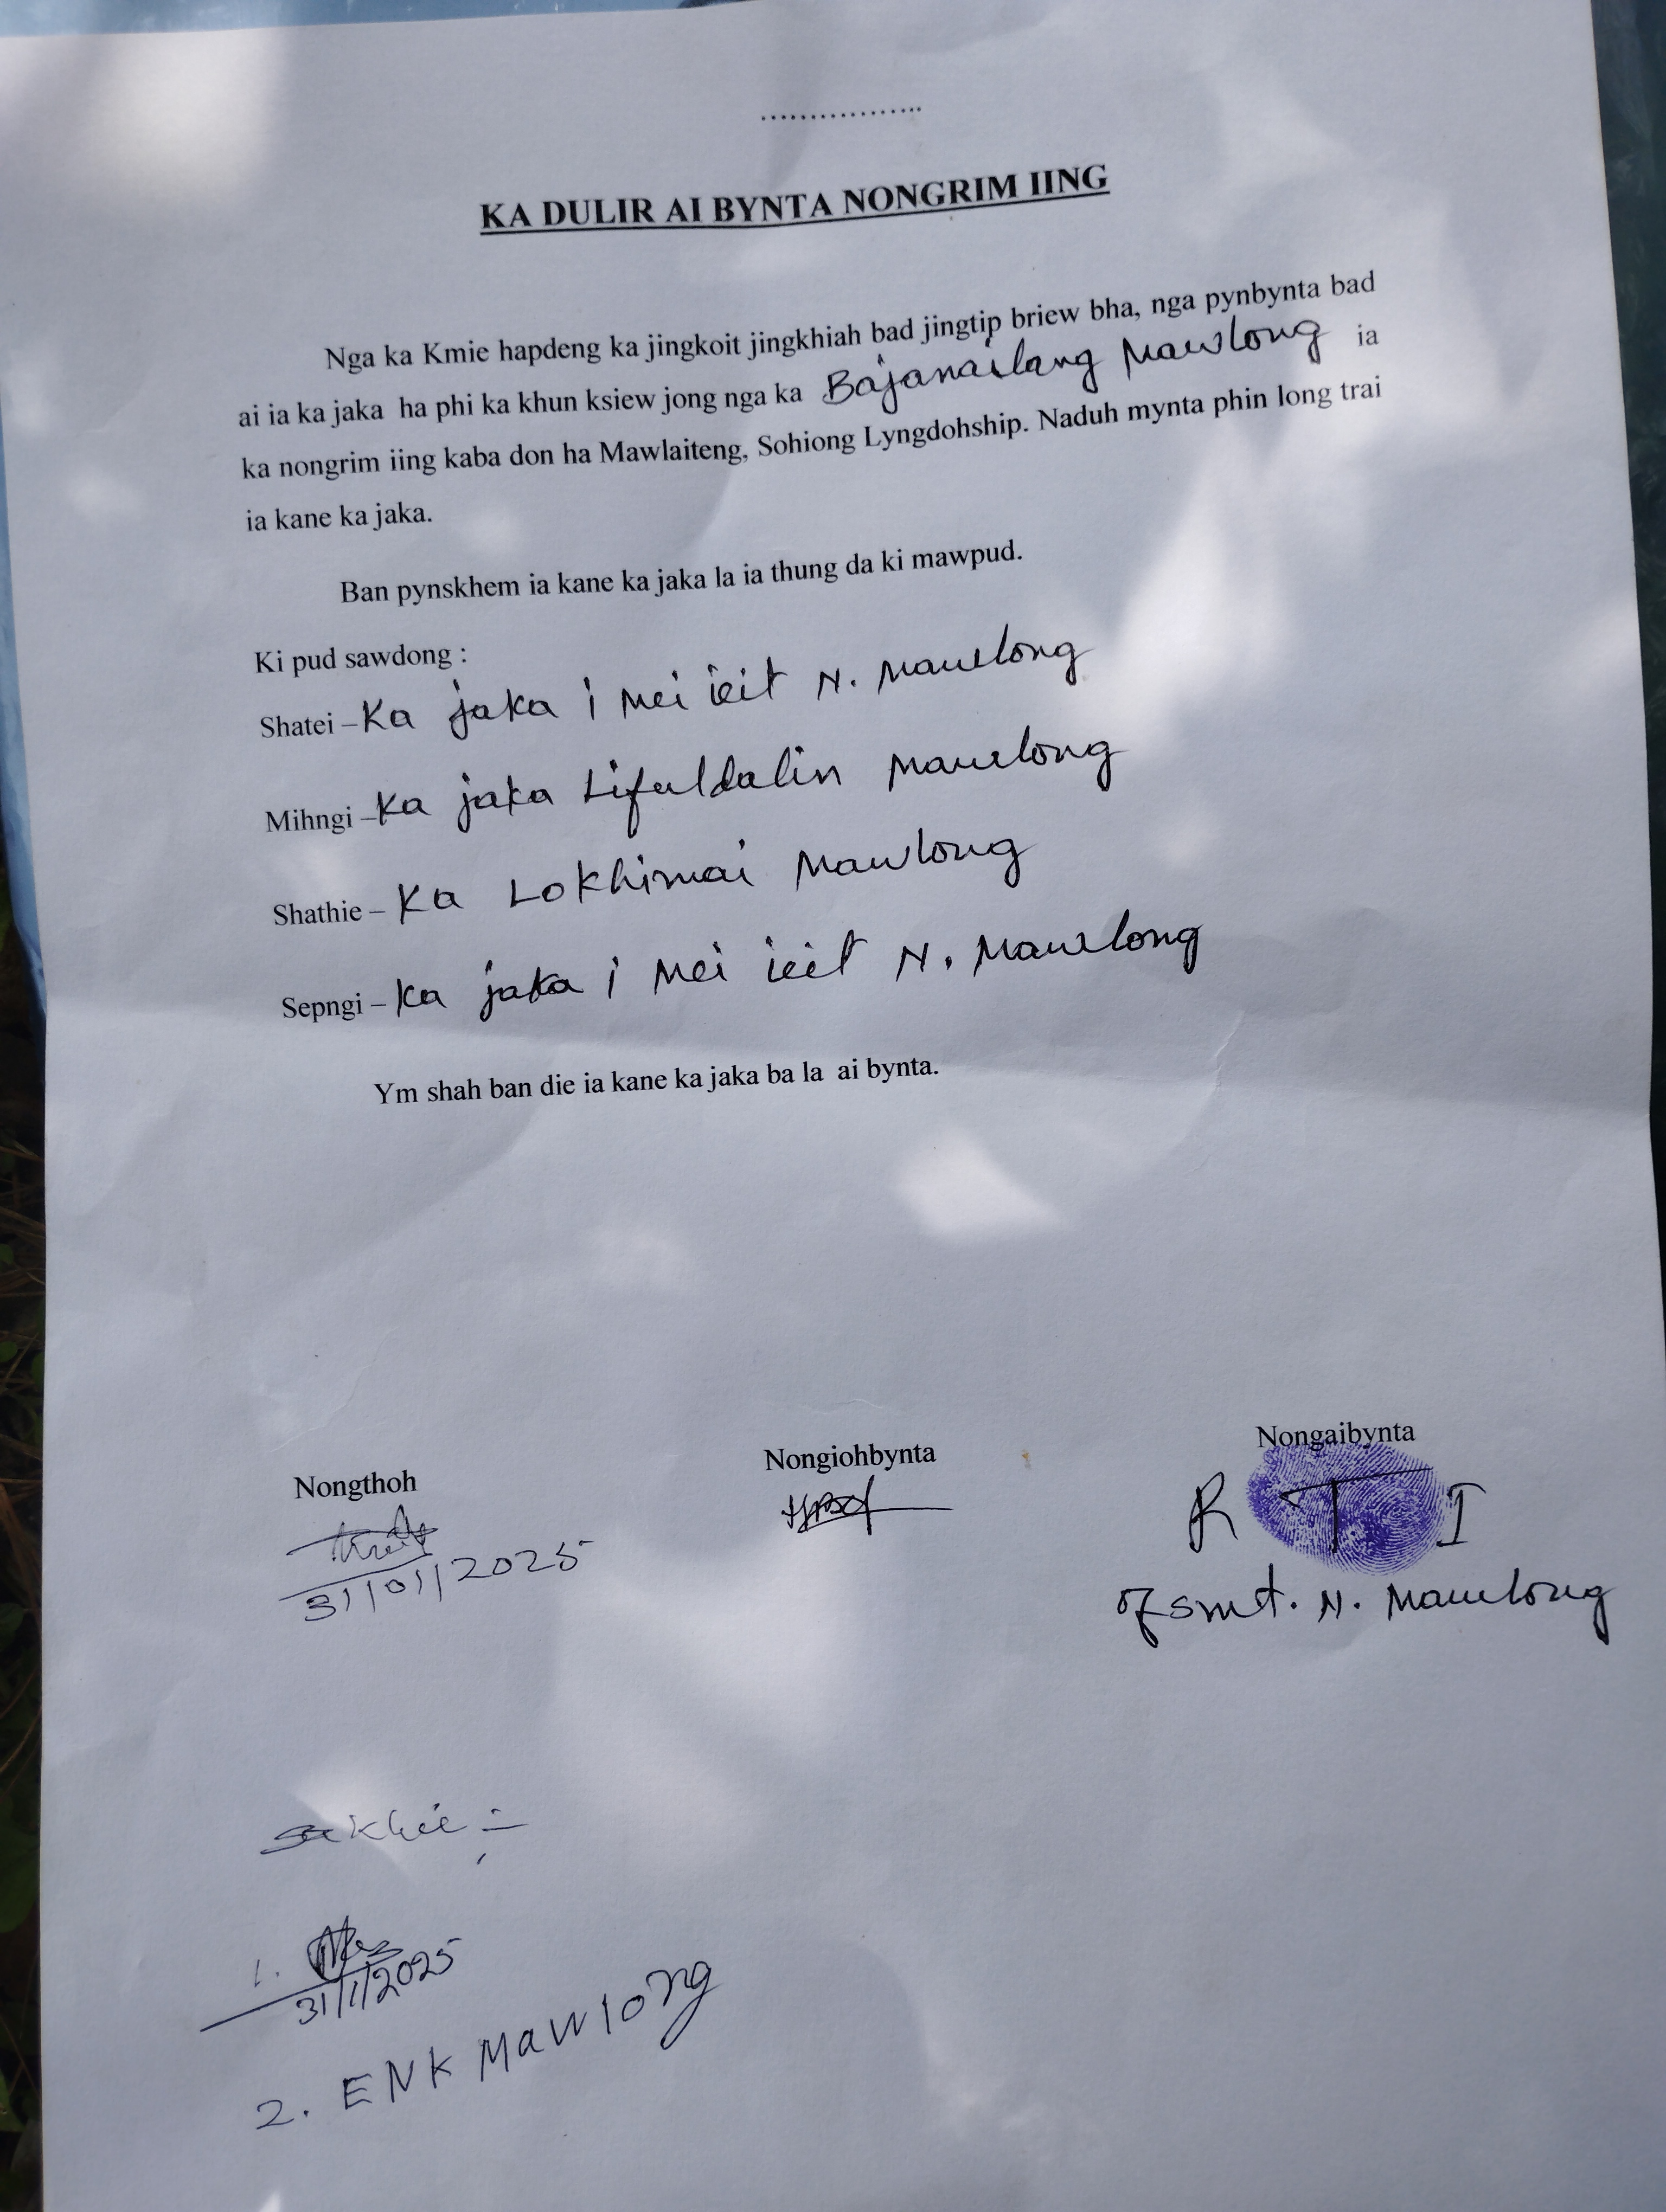 ..................
KA DULIR AI BYNTA NONGRIM IING
Nga ka Kmie hapdeng ka jingkoit jingkhiah bad jingtip briew bha, nga pynbynta bad
ai ia ka jaka ha phi ka khun ksiew jong nga ka Bajanailang Mawlong ia
ka nongrim iing kaba don ha Mawlaiteng, Sohiong Lyngdohship. Naduh mynta phin long trai
ia kane ka jaka.
Ban pynskhem ia kane ka jaka la ia thung da ki mawpud.
Ki pud sawdong :
Shatei – Ka jaka i Mei ieit N. Mawlong
Mihngi – Ka jaka Lifuldalin Mawlong
Shathie – Ka Lokhimai Mawlong
Sepngi – Ka jaka i Mei ieit N. Mawlong
Ym shah ban die ia kane ka jaka ba la ai bynta.
Nongthoh Nongiohbynta Nongaibynta
R T I
31/01/2025
of smt. N. Mawlong
Sakhi :-
1.
31/1/2025
2. ENK Mawlong